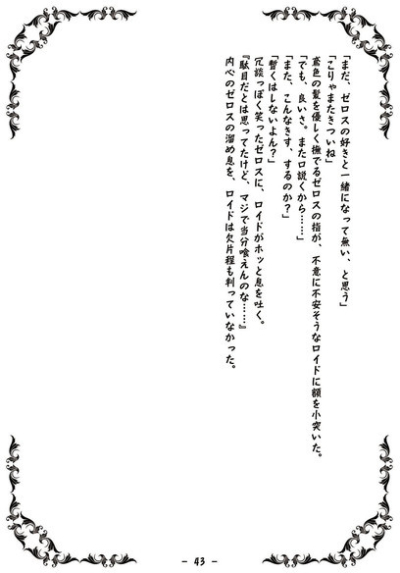 「まだ、ゼロスの好きと一緒になって無い、と思う」
「こりゃまたきついね」
鳶色の髪を優しく撫でるゼロスの指が、不意に不安そうなロイドに額を小突いた。
「でも、良いさ。また口説くから……」
「また、こんなきす、するのか？」
「暫くはしないよん？」
冗談っぽく笑ったゼロスに、ロイドがホッと息を吐く。
『駄目だとは思ってたけど、マジで当分喰えんのな……』
内心のゼロスの溜め息を、ロイドは欠片程も判っていなかった。
- 43 -